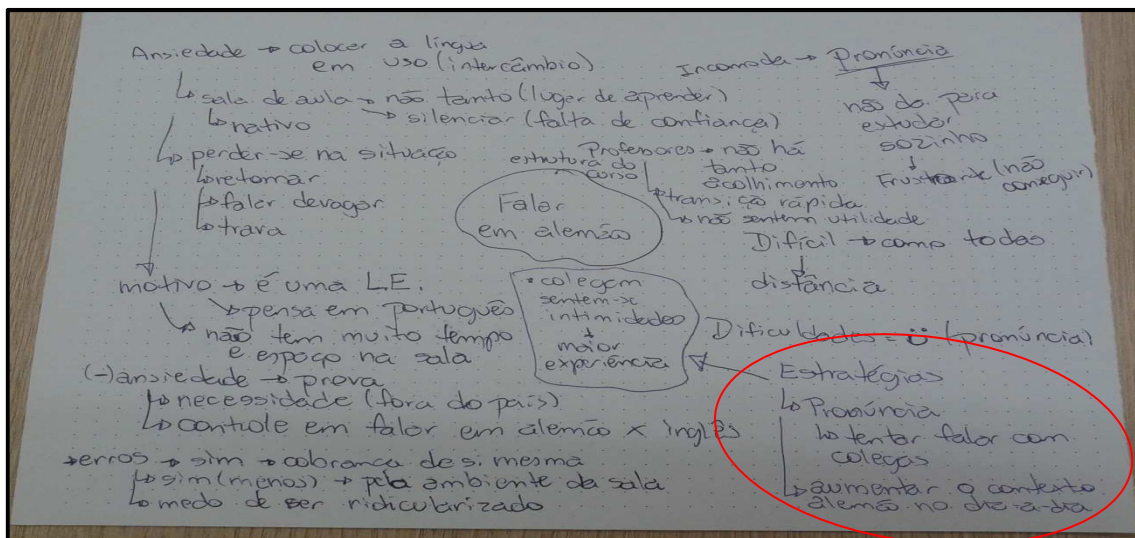 Ansiedade → colocar a língua
em uso (intercâmbio)
↳ sala de aula → não tanto (lugar de aprender)
↳ nativo ↘ silenciar (falta de confiança)
↳ perder-se na situação
↳ retomar
↳ falar devagar
↳ trava
motivo → é uma L.E.
↘ pensa em português
↘ não tem muito tempo
e espaço na sala
(-) ansiedade → prova
↳ necessidade (fora do país)
↳ controle em falar em alemão x inglês
→ erros → sim → cobrança de si mesma
↳ sim (menos) → pelo ambiente da sala
↳ medo de ser ridicularizado
Falar
em alemão
estrutura do
curso
Professores → não há
tanto
acolhimento
↳ transição rápida
↳ não sentem utilidade
Incomoda → Pronúncia
↓
não dá para
estudar
sozinho
↓
Frustrante (não
conseguir)
Difícil → como todas
↓
distância
• colegam
sentem-se
intimidados
↓
maior
experiência
Dificuldades = (pronúncia)
Estratégias
↳ Pronúncia
↳ tentar falar com
colegas
↳ aumentar o contexto
alemão no dia-a-dia